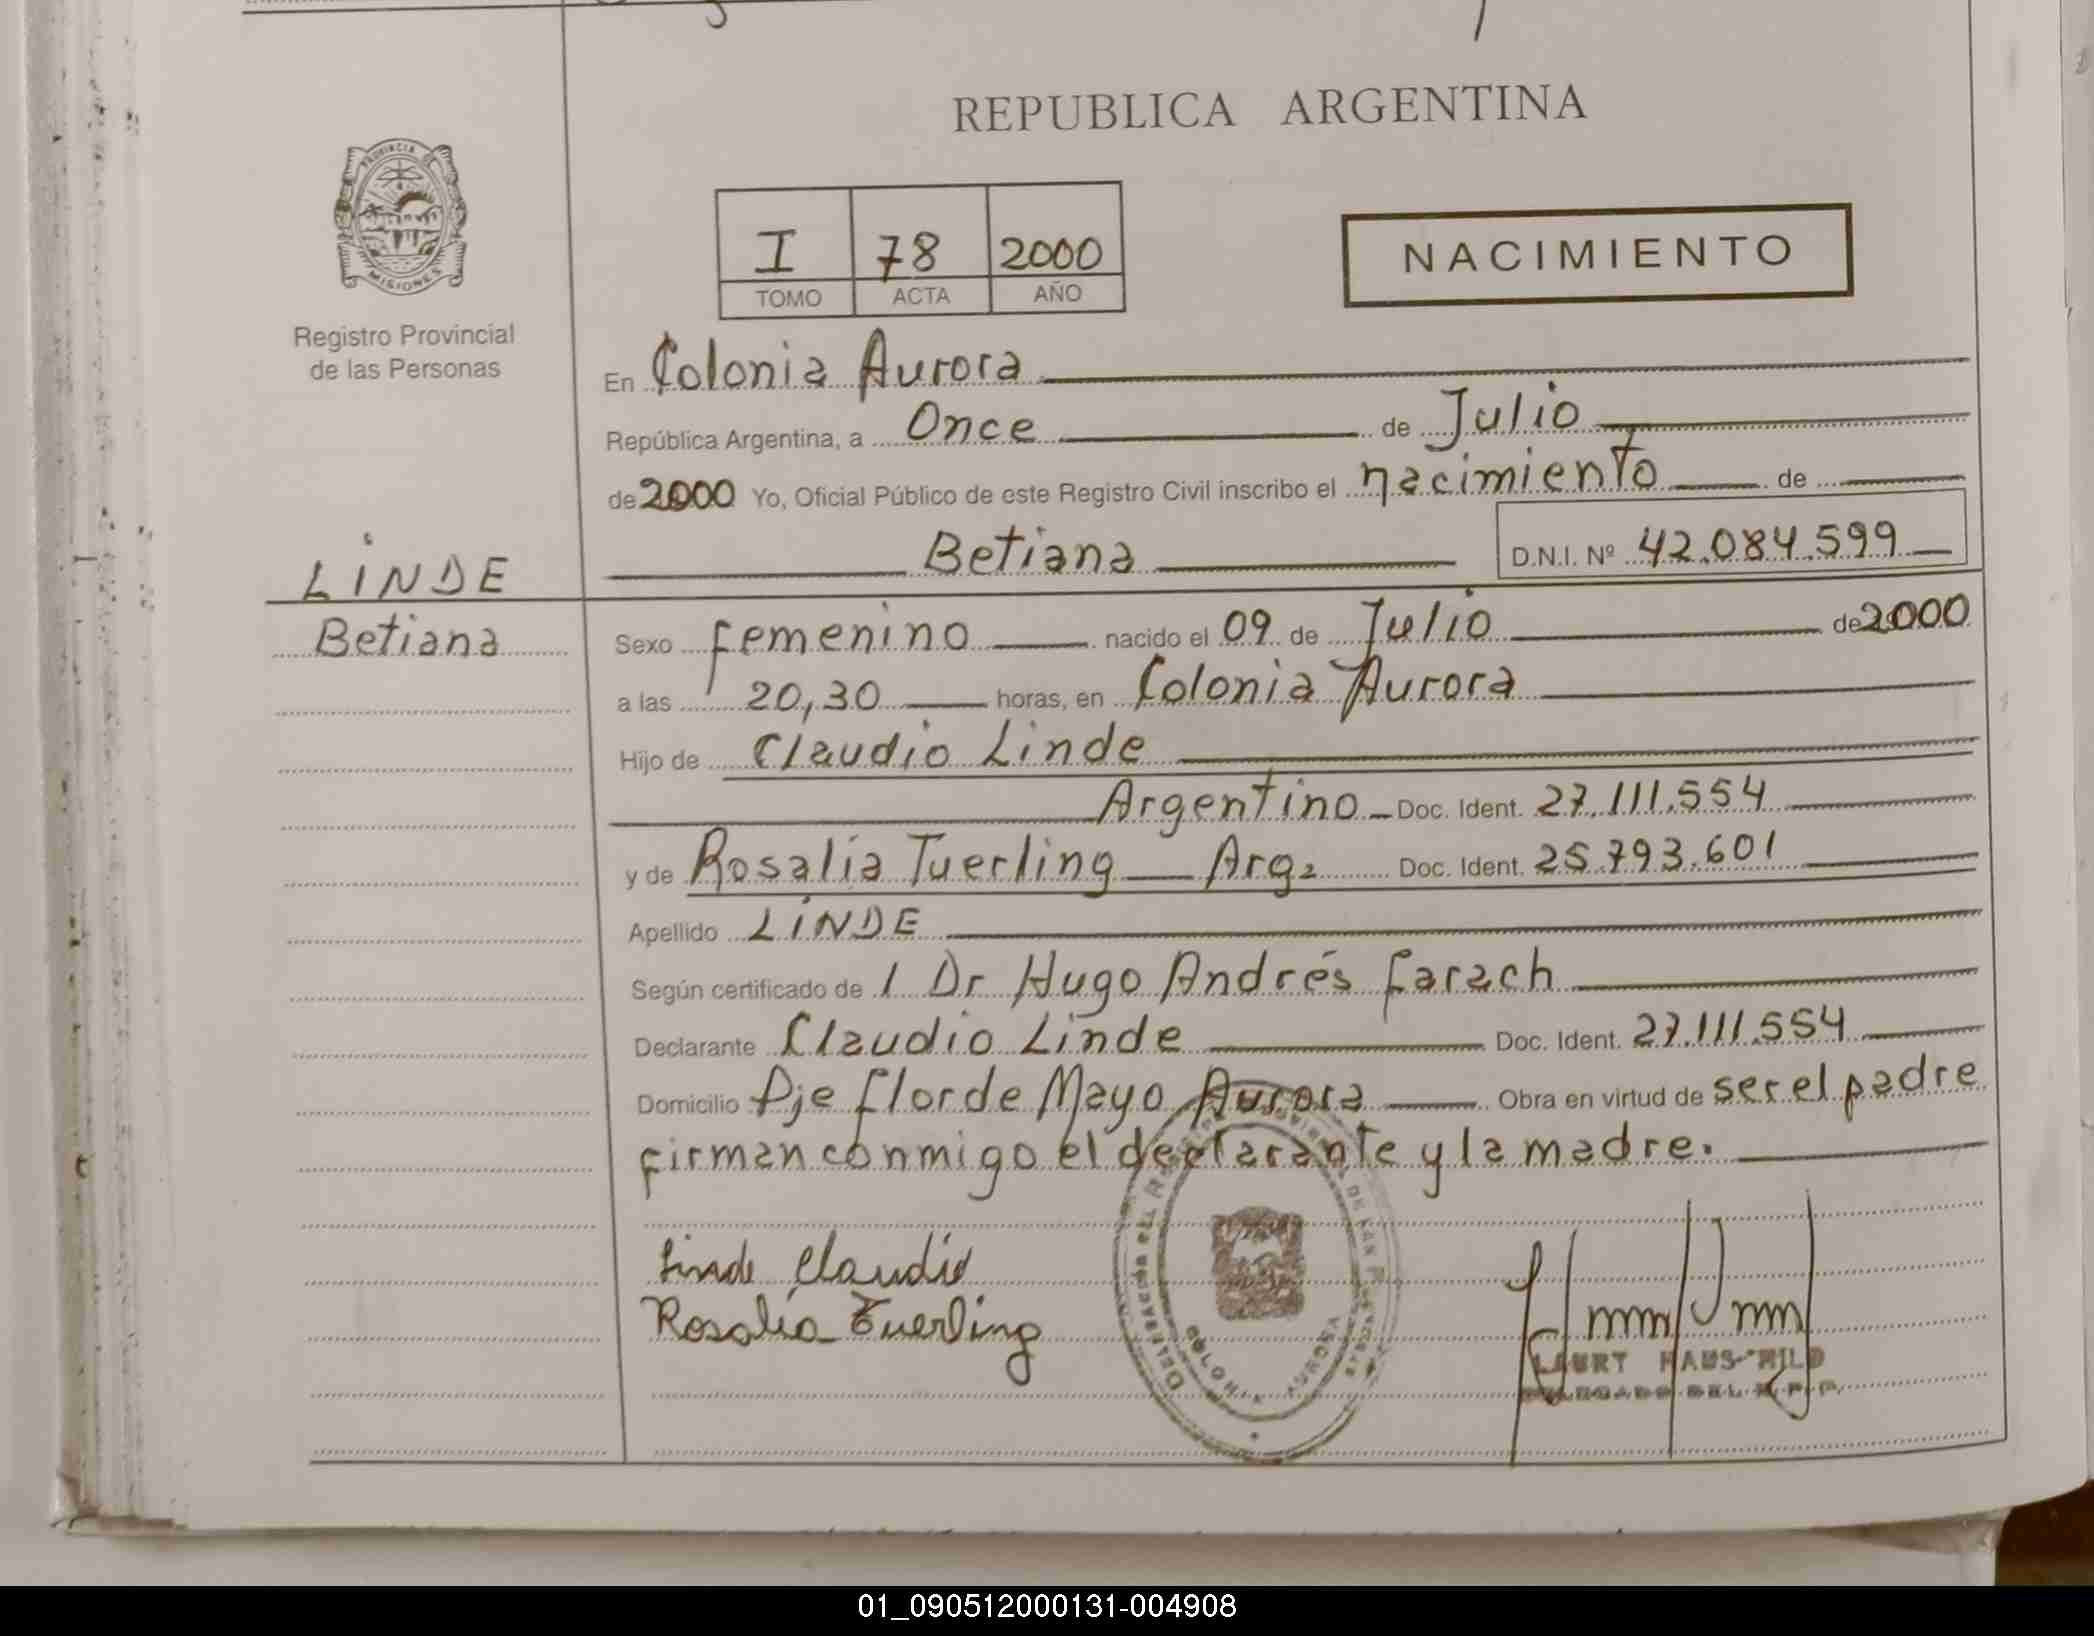 REPUBLICA ARGENTINA
PROVINCIA DE
MISIONES
Registro Provincial
de las Personas
I 78 2000
TOMO ACTA AÑO
NACIMIENTO
En Colonia Aurora
República Argentina, a Once de Julio
de 2000 Yo, Oficial Público de este Registro Civil inscribo el nacimiento de
Betiana D.N.I. Nº 42.084.599
LINDE
Betiana
Sexo femenino nacido el 09 de Julio de 2000
a las 20,30 horas, en Colonia Aurora
Hijo de Claudio Linde
Argentino Doc. Ident. 27.111.554
y de Rosalia Tuerling Arg. Doc. Ident. 25.793.601
Apellido LINDE
Según certificado de l Dr Hugo Andrés Farach
Declarante Claudio Linde Doc. Ident. 27.111.554
Domicilio Pje Flor de Mayo Aurora Obra en virtud de ser el padre
firman conmigo el declarante y la madre.
Linde Claudio
Rosalia Tuerling
COLONIA AURORA
01_090512000131-004908